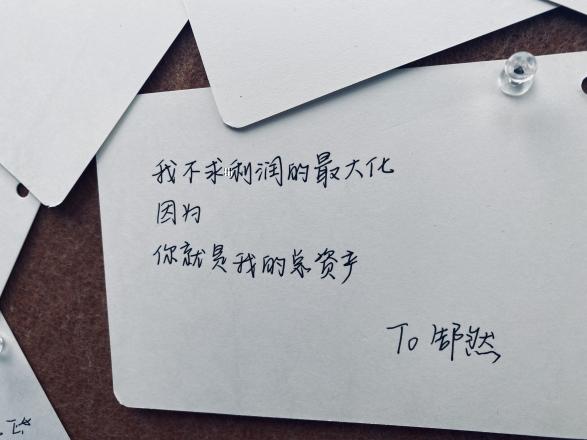 我不求利润的最大化
因为
你就是我的总资产
To 郜然